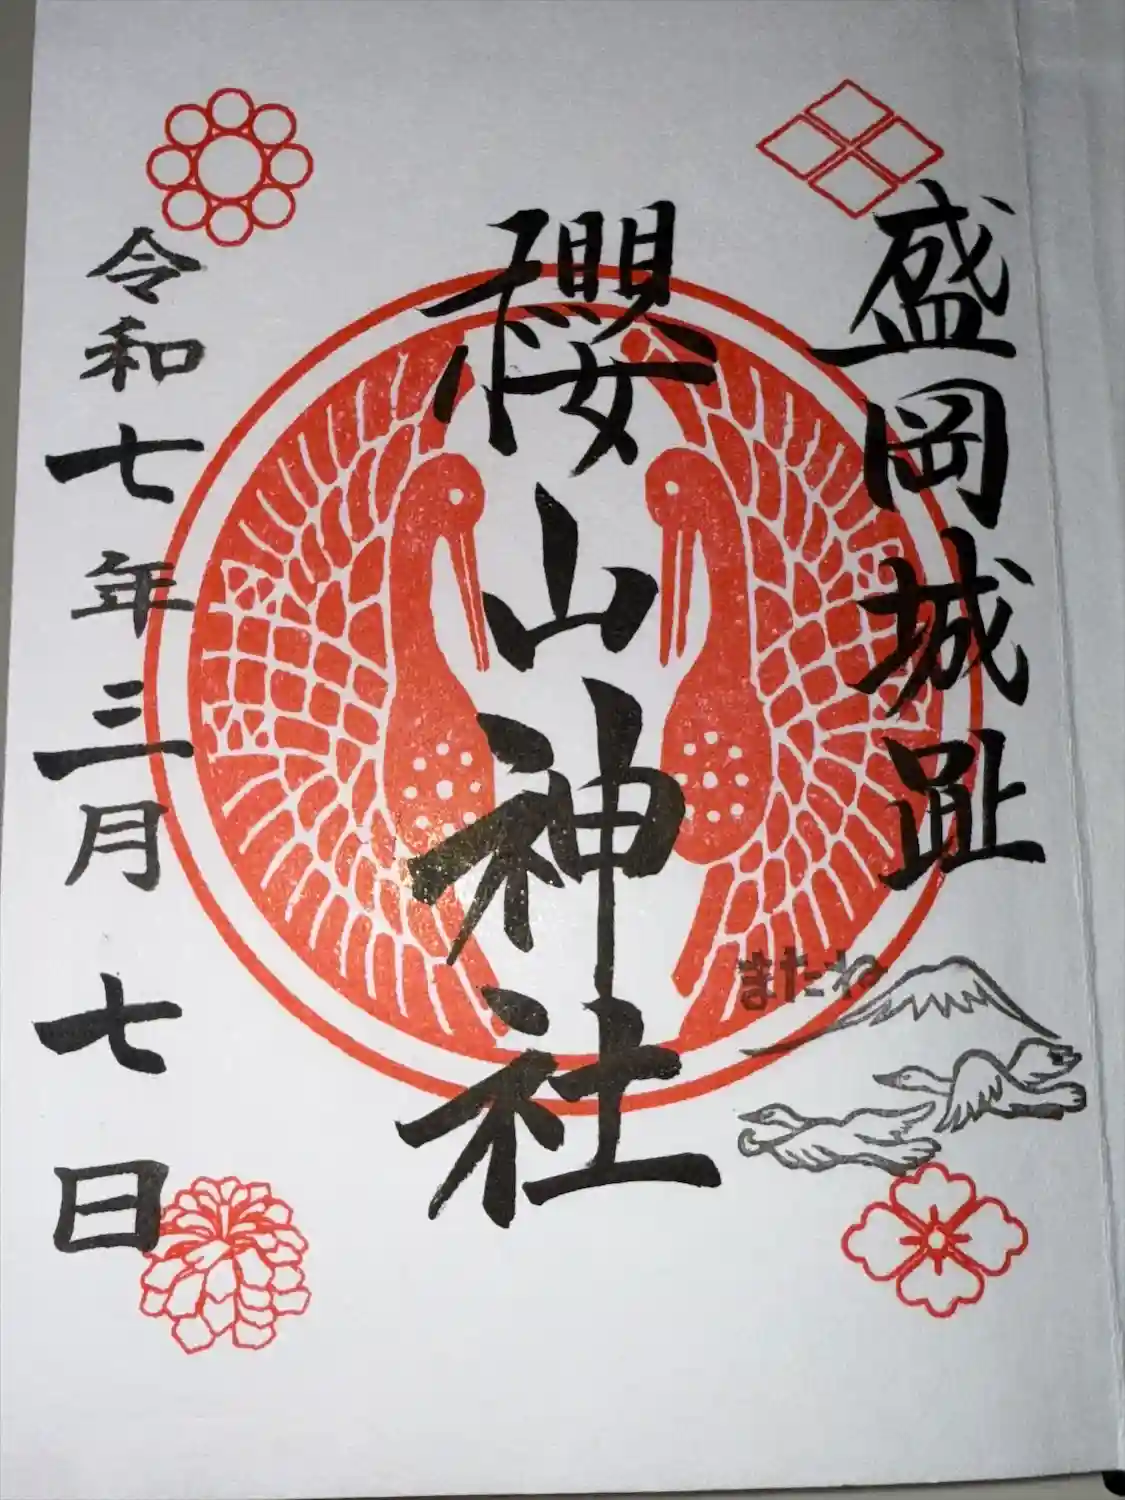 盛岡城趾
櫻山神社
令和七年三月七日
またね